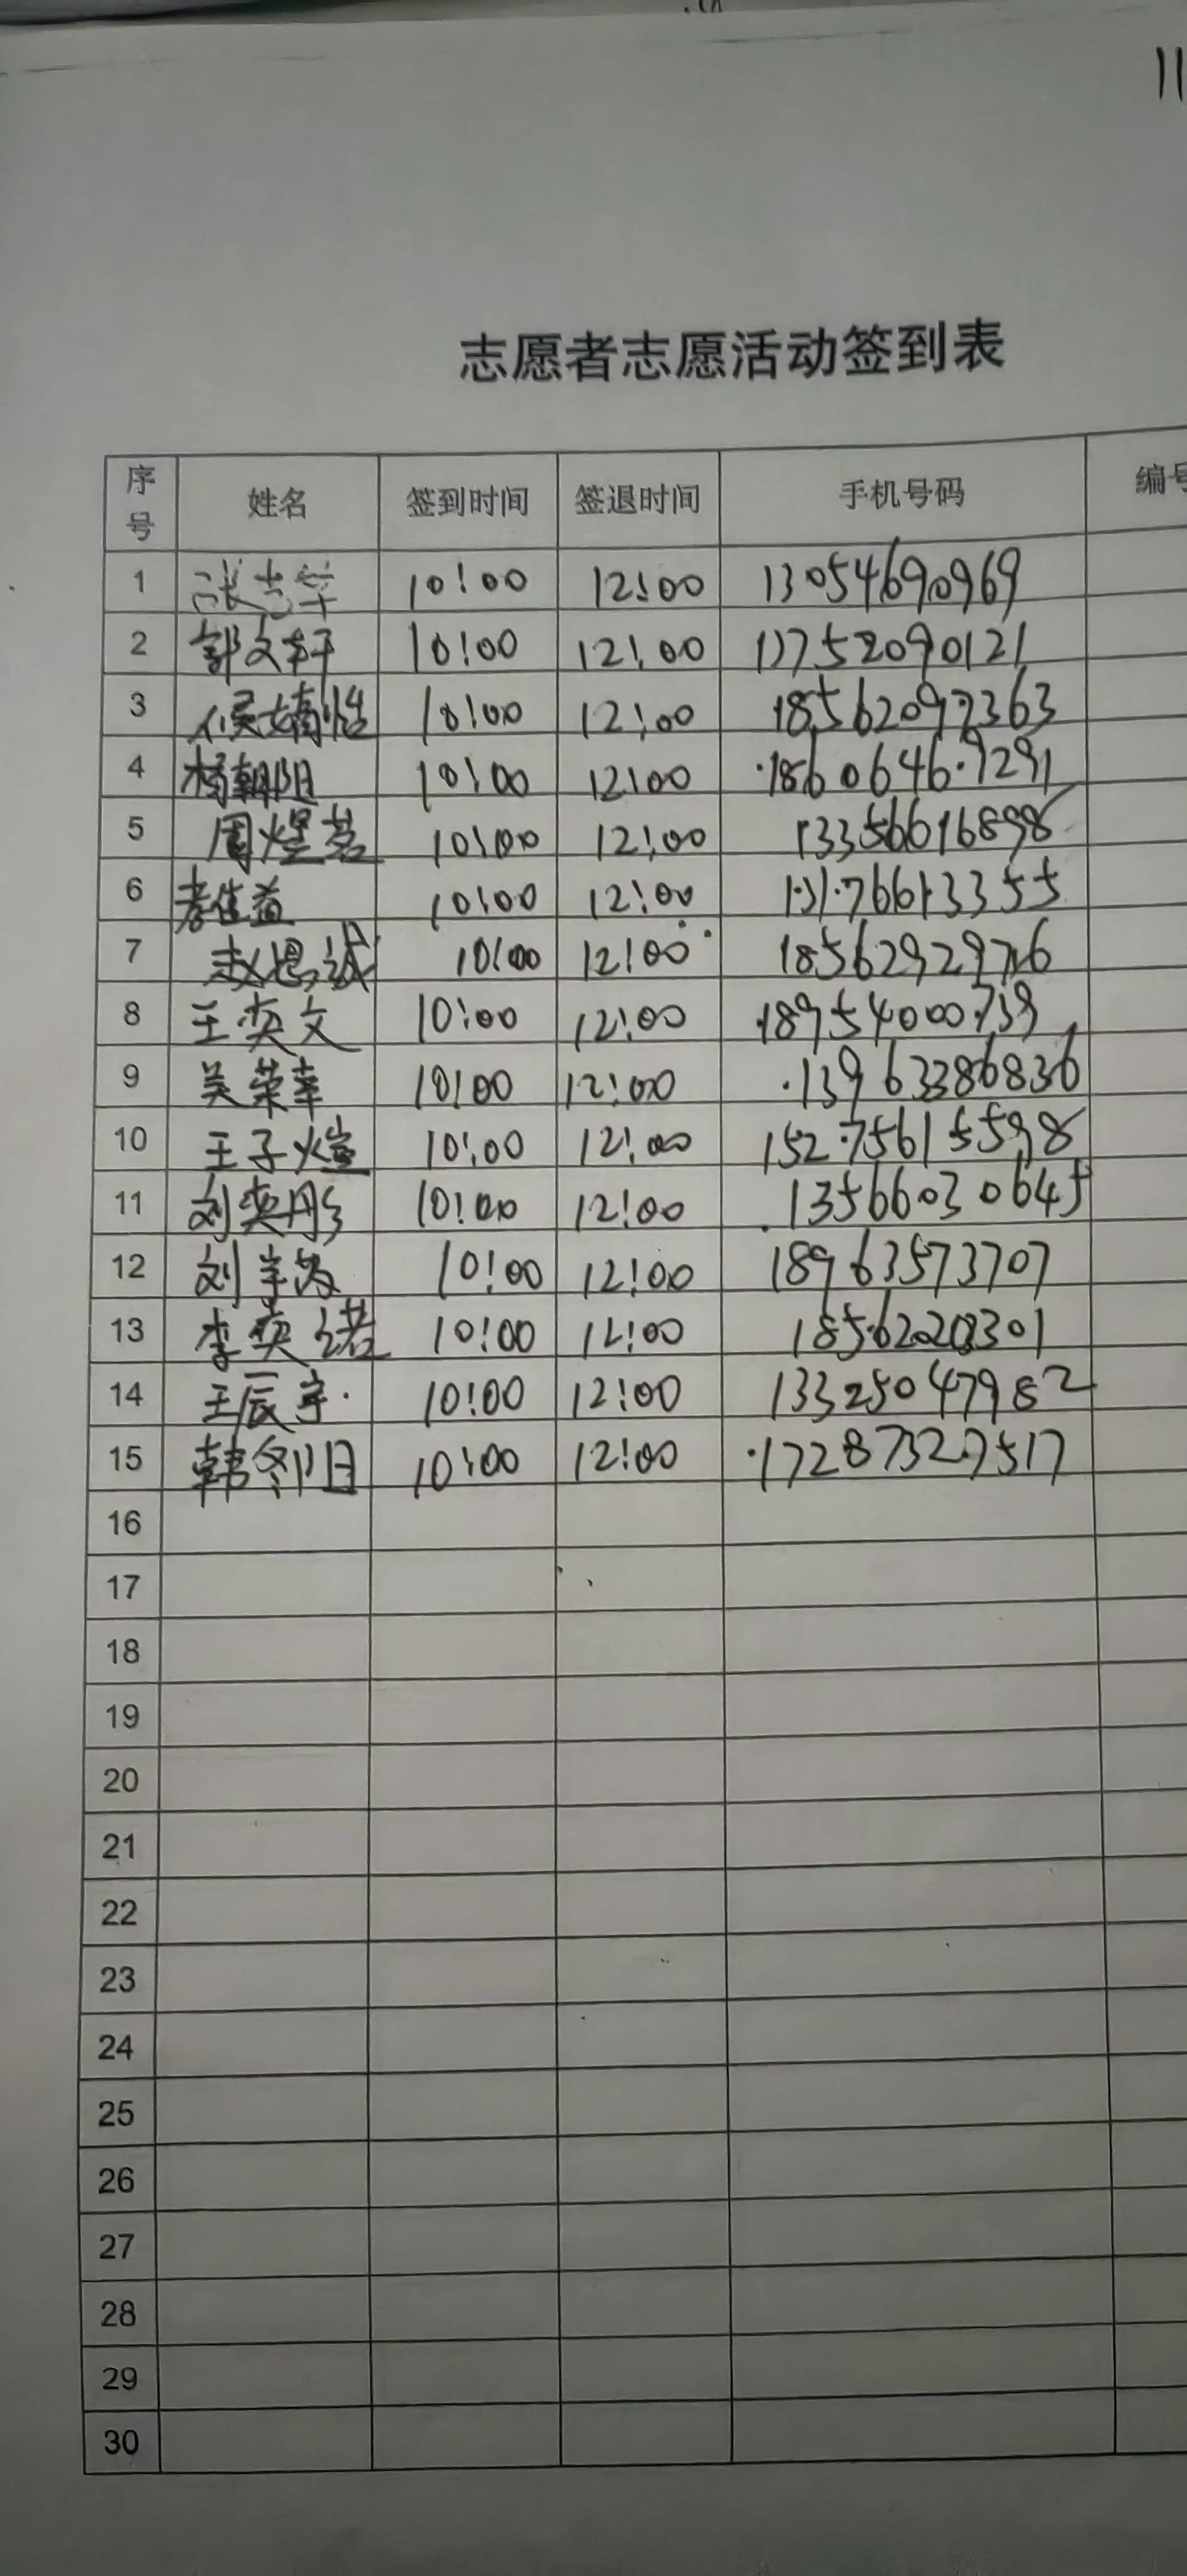 11
志愿者志愿活动签到表
序号 姓名 签到时间 签退时间 手机号码 编号
1 张志华 10:00 12:00 13054690969
2 郭文轩 10:00 12:00 17752090121
3 侯婧怡 10:00 12:00 18562097363
4 杨朝阳 10:00 12:00 18606469291
5 周煜茗 10:00 12:00 13356616898
6 10:00 12:00 13176613355
7 赵思诚 10:00 12:00 18562929726
8 王奕文 10:00 12:00 18954000739
9 吴荣幸 10:00 12:00 13963386836
10 王子煊 10:00 12:00 15275615598
11 刘奕彤 10:00 12:00 13566030645
12 刘 10:00 12:00 18963573707
13 李奕诺 10:00 12:00 18562203301
14 王辰宇 10:00 12:00 13325047982
15 韩 10:00 12:00 17287327517
16
17
18
19
20
21
22
23
24
25
26
27
28
29
30